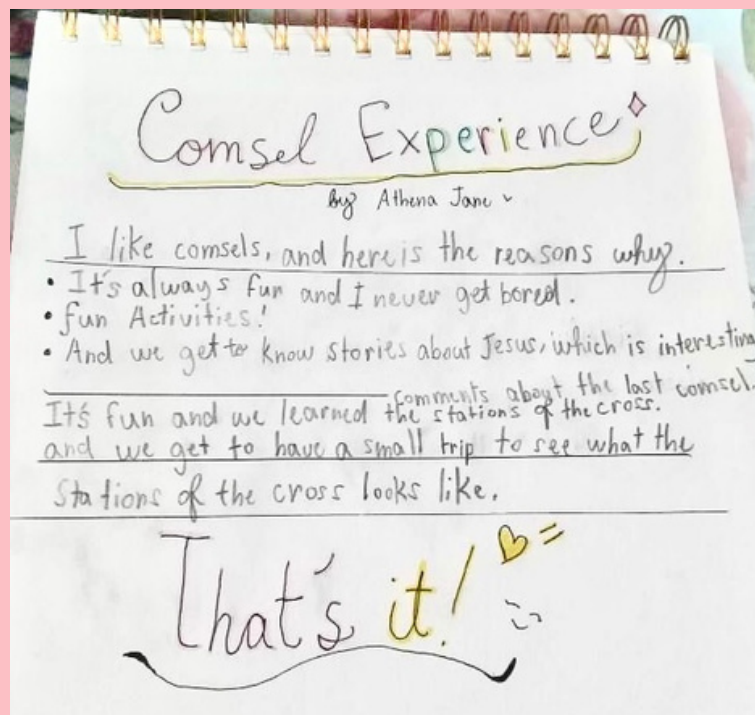 Comsel Experience
by Athena Jane
I like comsels, and here is the reasons why.
• It's always fun and I never get bored.
• fun Activities!
• And we get to know stories about Jesus, which is interesting
comments about the last comsel.
It's fun and we learned the stations of the cross.
and we get to have a small trip to see what the
stations of the cross looks like.
That's it!